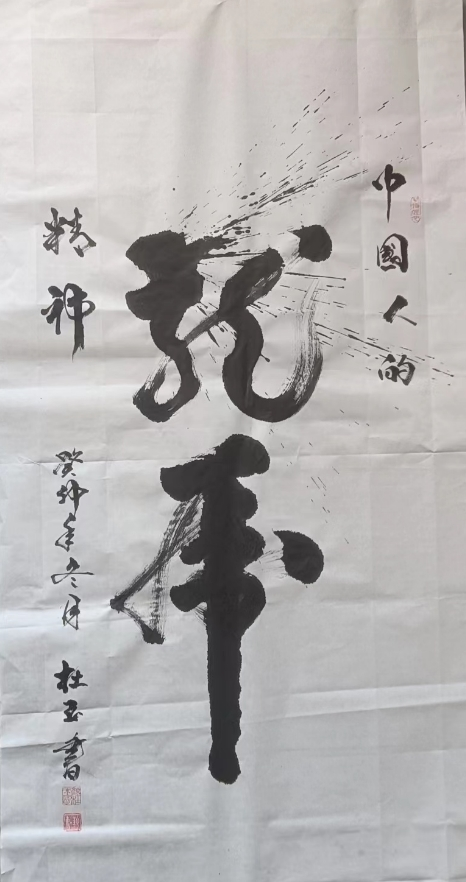 中國人的
龍虎
精神
癸卯年冬月
杜玉書